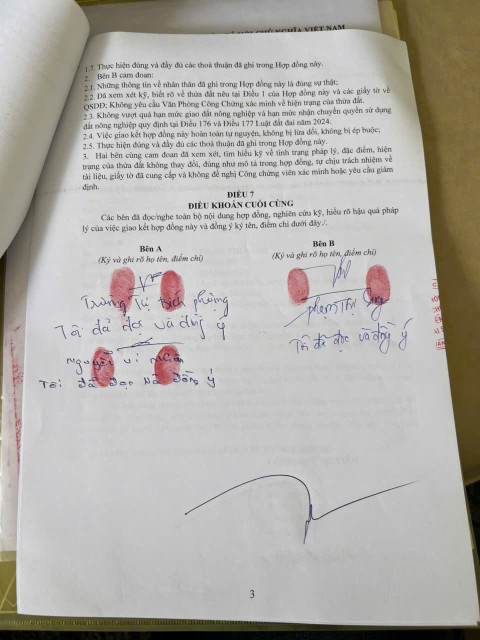 HỘI CHỦ NGHĨA VIỆT NAM
1.7. Thực hiện đúng và đầy đủ các thoả thuận đã ghi trong Hợp đồng này.
2. Bên B cam đoan:
2.1. Những thông tin về nhân thân đã ghi trong Hợp đồng này là đúng sự thật;
2.2. Đã xem xét kỹ, biết rõ về thửa đất nêu tại Điều 1 của Hợp đồng này và các giấy tờ về
QSDĐ; Không yêu cầu Văn Phòng Công Chứng xác minh về hiện trạng của thửa đất.
2.3. Không vượt quá hạn mức giao đất nông nghiệp và hạn mức nhận chuyển quyền sử dụng
đất nông nghiệp quy định tại Điều 176 và Điều 177 Luật đất đai năm 2024.
2.4. Việc giao kết hợp đồng này hoàn toàn tự nguyện, không bị lừa dối, không bị ép buộc;
2.5. Thực hiện đúng và đầy đủ các thoả thuận đã ghi trong Hợp đồng này.
3. Hai bên cùng cam đoan đã xem xét, tìm hiểu kỹ về tình trạng pháp lý, đặc điểm, hiện
trạng của thửa đất không thay đổi, đúng như mô tả trong hợp đồng, tự chịu trách nhiệm về
tài liệu, giấy tờ đã cung cấp và không đề nghị Công chứng viên xác minh hoặc yêu cầu giám
định.
ĐIỀU 7
ĐIỀU KHOẢN CUỐI CÙNG
Các bên đã đọc/nghe toàn bộ nội dung hợp đồng, nghiên cứu kỹ, hiểu rõ hậu quả pháp
lý của việc giao kết hợp đồng này và đồng ý ký tên, điểm chỉ dưới đây./.
Bên A
(Ký và ghi rõ họ tên, điểm chỉ)
Trương Thị Bích phượng
Tôi đã đọc và đồng ý
Nguyễn vi nhân
Tôi đã đọc và đồng ý
Bên B
(Ký và ghi rõ họ tên, điểm chỉ)
phạm Thị
Tôi đã đọc và đồng ý
3